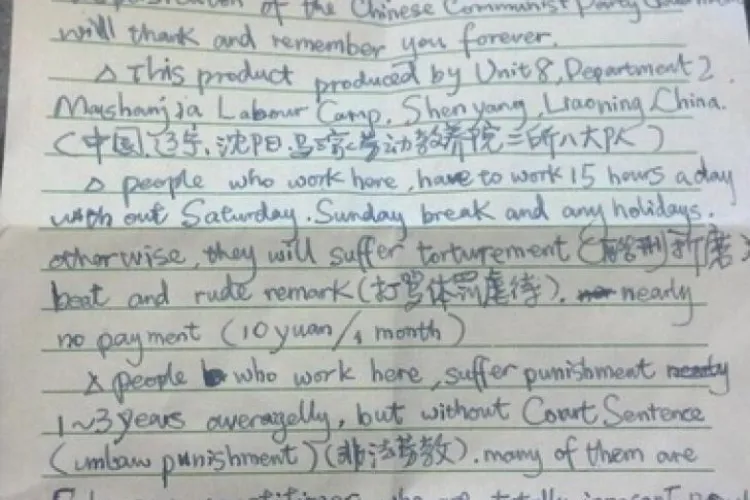 of the Chinese Communist Party
will thank and remember you forever.
△ This product produced by Unit 8, Department 2,
Mashanjia Labour Camp, Shenyang, Liaoning, China.
(中国,辽宁,沈阳,马三家劳动教养院二所八大队)
△ people who work here, have to work 15 hours a day
with out Saturday, Sunday break and any holidays.
otherwise, they will suffer torturement (酷刑折磨)
beat and rude remark (打骂体罚虐待). nearly
no payment (10 yuan/1 month)
△ people who work here, suffer punishment nearly
1~3 years averagelly, but without Court Sentence
(unlaw punishment) (非法劳教). many of them are
totally innocent